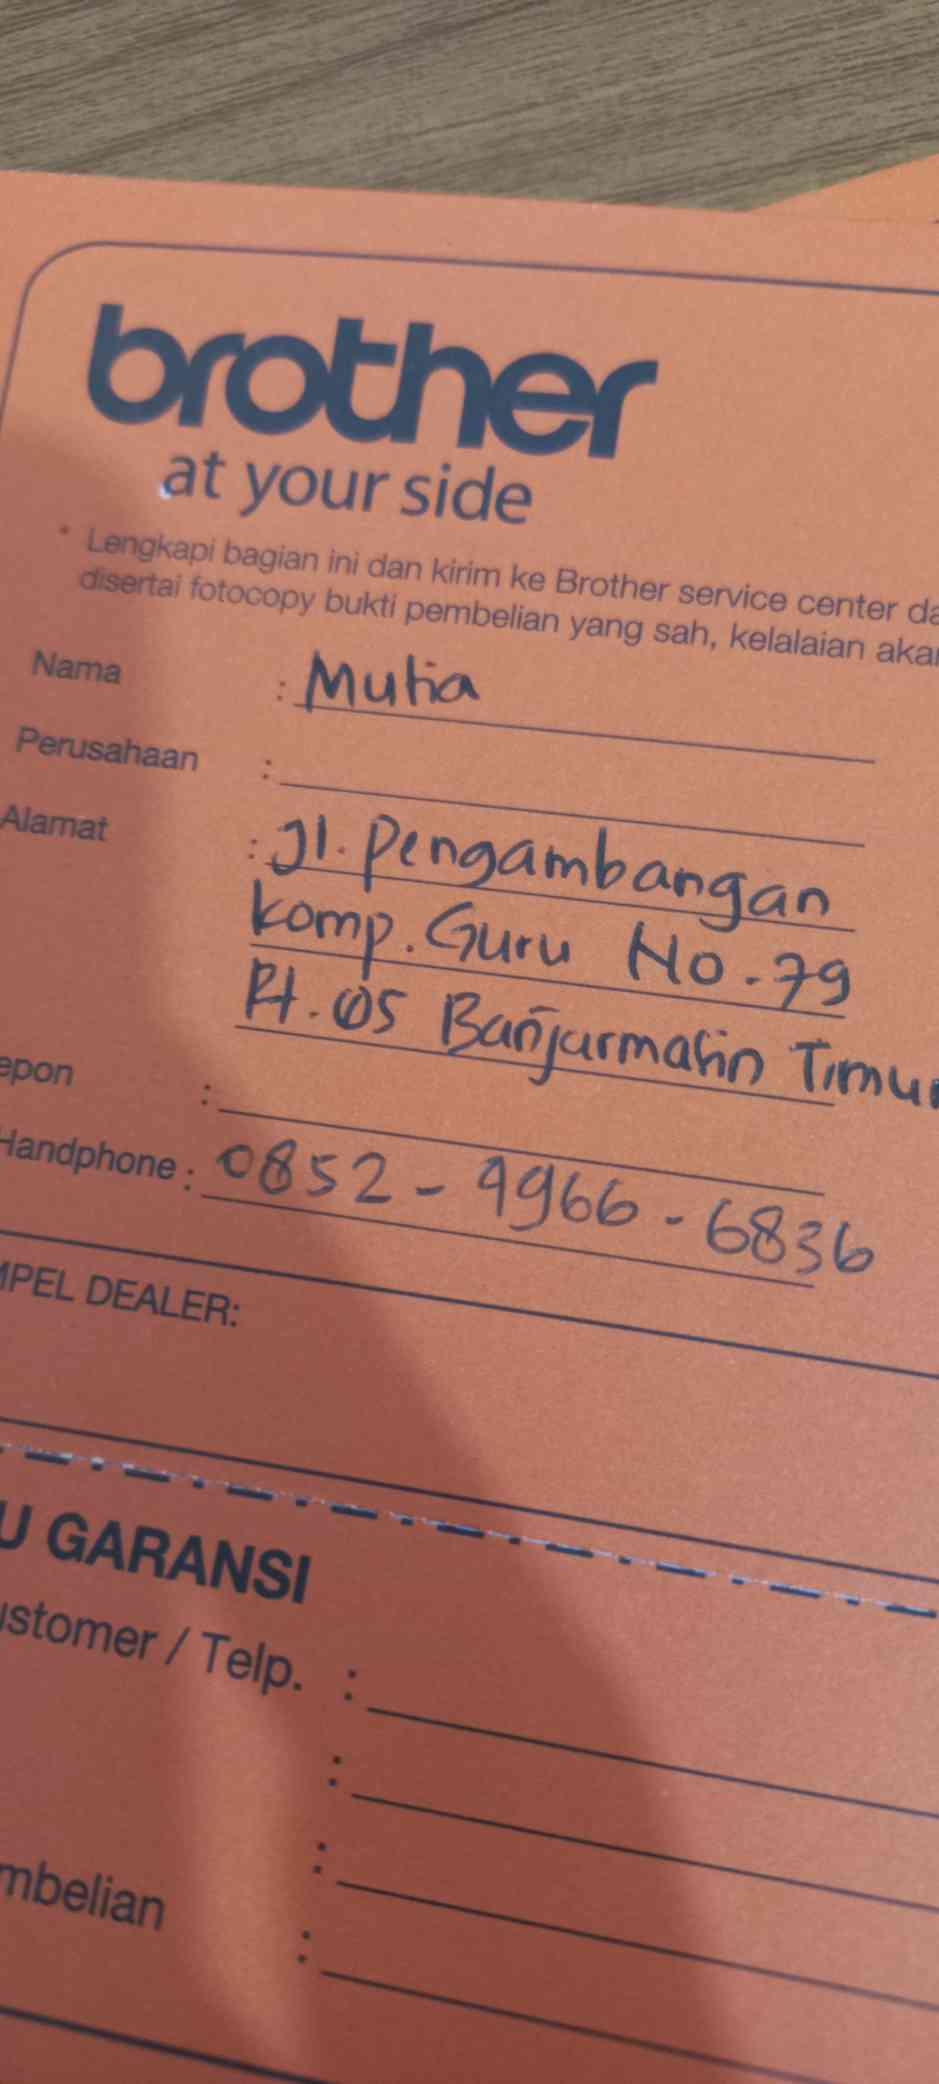 brother
at your side
* Lengkapi bagian ini dan kirim ke Brother service center da
disertai fotocopy bukti pembelian yang sah, kelalaian akan
Nama : Mutia
Perusahaan :
Alamat : Jl. Pengambangan
Komp. Guru No. 79
Rt. 05 Banjarmasin Timur
epon :
Handphone : 0852 - 9966 - 6836
MPEL DEALER:
U GARANSI
ustomer / Telp. :
:
:
mbelian :